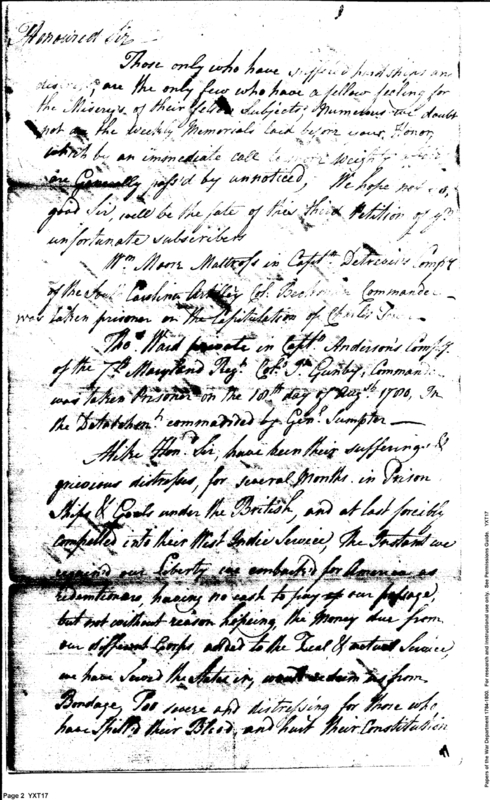 Honoured Sir
Those only who have suffer'd hardships and
distress, are the only few who have a fellow feeling for
the Miserys of their fellow Subjects, Numerous we doubt
not are the weekly Memorials laid before your Honor,
which by an immediate call to more weighty
are Generally pass'd by unnoticed, We hope not so,
good Sir, will be the fate of this third Petition of yr
unfortunate subscribers
Wm Moore Mattross in Captn Compy
of the South Carolina Artillery Col. Commander
was taken prisoner on the Capitulation of Charles Town
Thos Ward private in Captn Anderson's Compy
of the 7th Maryland Regt Coll Jn Gunby, Commandr
was taken Prisoner on the 18th day of Augst 1780, In
the Detatchmt commanded by Genl Sumpter
Alike Hond Sir, have been their sufferings &
grievous distresses, for several Months in Prison
Ships & Goals under the British, and at last forcibly
compelled into their West India Service, The Instant we
regained our Liberty we contracted for America as
redemtioners, having no cash to pay our passage,
but not without reason hopeing the Money due from
our different Corps, added to the Zeal & actual Service,
we have Served the States in, would redeem us from
Bondage, Too severe and distressing for those who
have Spilled their Blood, and hurt their Constitution
Page 2 YXT17
Papers of the War Department 1784-1800. For research and instructional use only. See Permissions Guide. YXT17